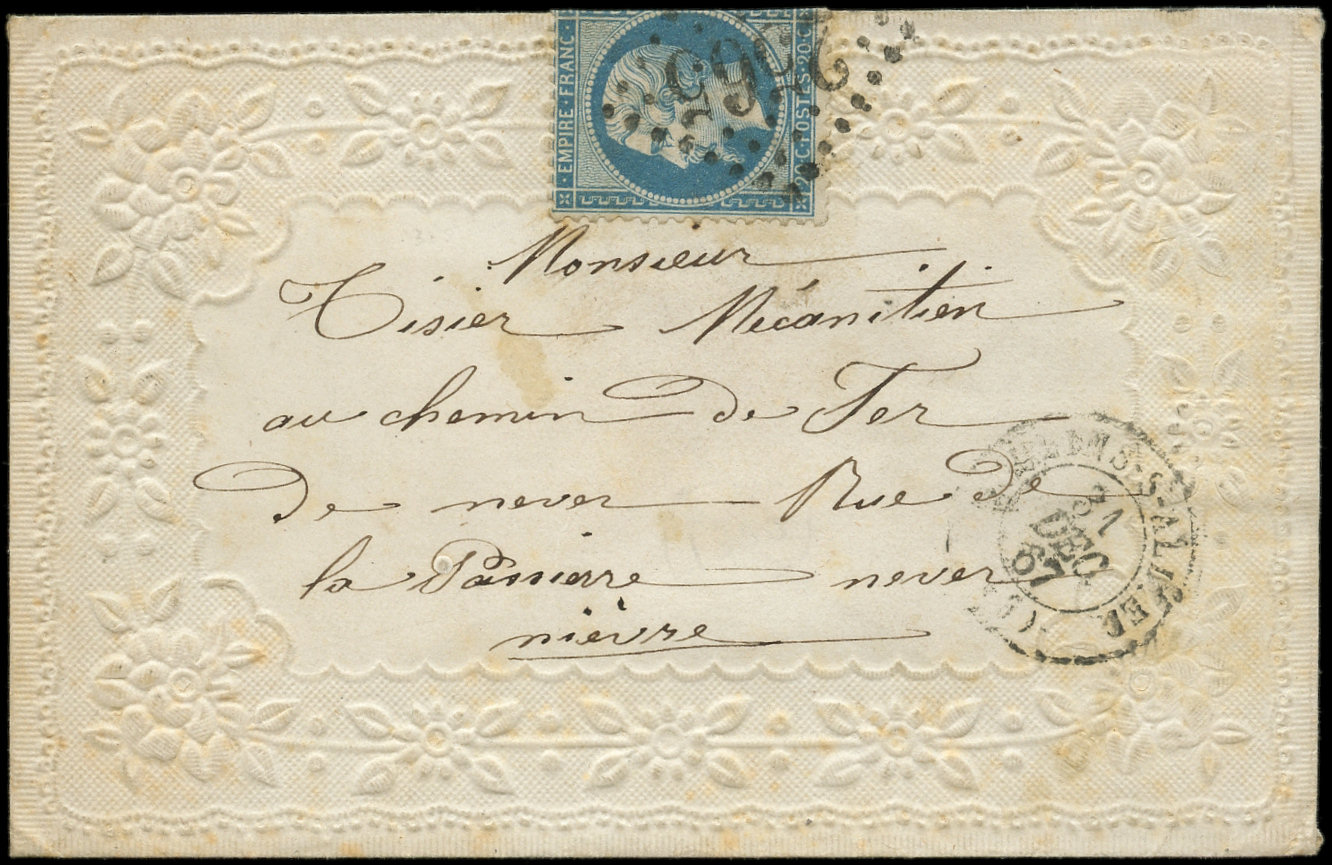 EMPIRE · FRANC ·
· POSTES · 20 · C
2565
Monsieur
Tisier Mécanitien
au chemin de Fer
de never Rue de
la never
nièvre
31
DEC.
67